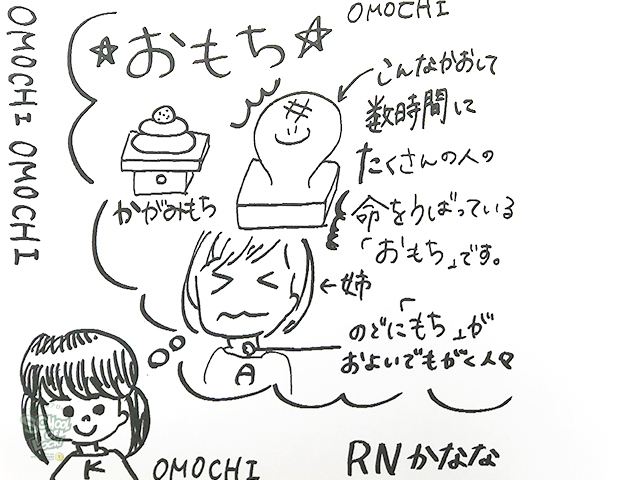 OMOCHI
OMOCHI OMOCHI
☆おもち☆
こんなかおして
数時間して
たくさんの人の
命をうばっている
「おもち」です。
かがみもち
←姉
のどに「もち」が
およいでもがく人
A
K
OMOCHI
RNかななな